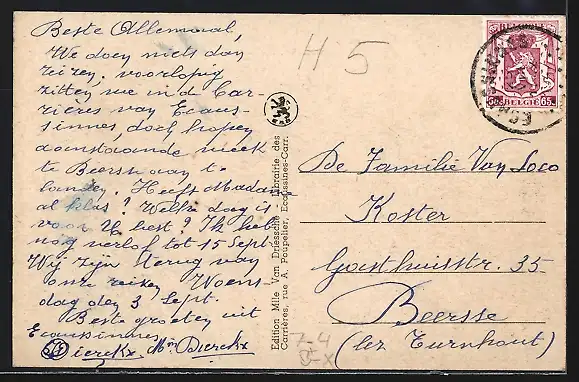 Beste Allemaal,
We doen niets dan
reizen, voorlopig
zitten we in de Car-
rières van Ecaus-
sinnes, doch hopen
aanstaande week
te Beersse aan te
landen. Heeft Madame
al klas? Welke dag is
voor U best? Ik heb
nog verlof tot 15 Sept.
Wij zijn terug van
onze reizen Woens-
dag den 3 Sept.
Beste groeten uit
Ecaussinnes
Dierckx
H 5
Edition Mlle Van Driessche - Librairie des
Carrières, rue A. Poupelier, Ecaussines-Carr.
BELGIE
65c
De Familie Van Loco
Koster
Gasthuisstr. 35
Beersse
(bez Turnhout)
7-4